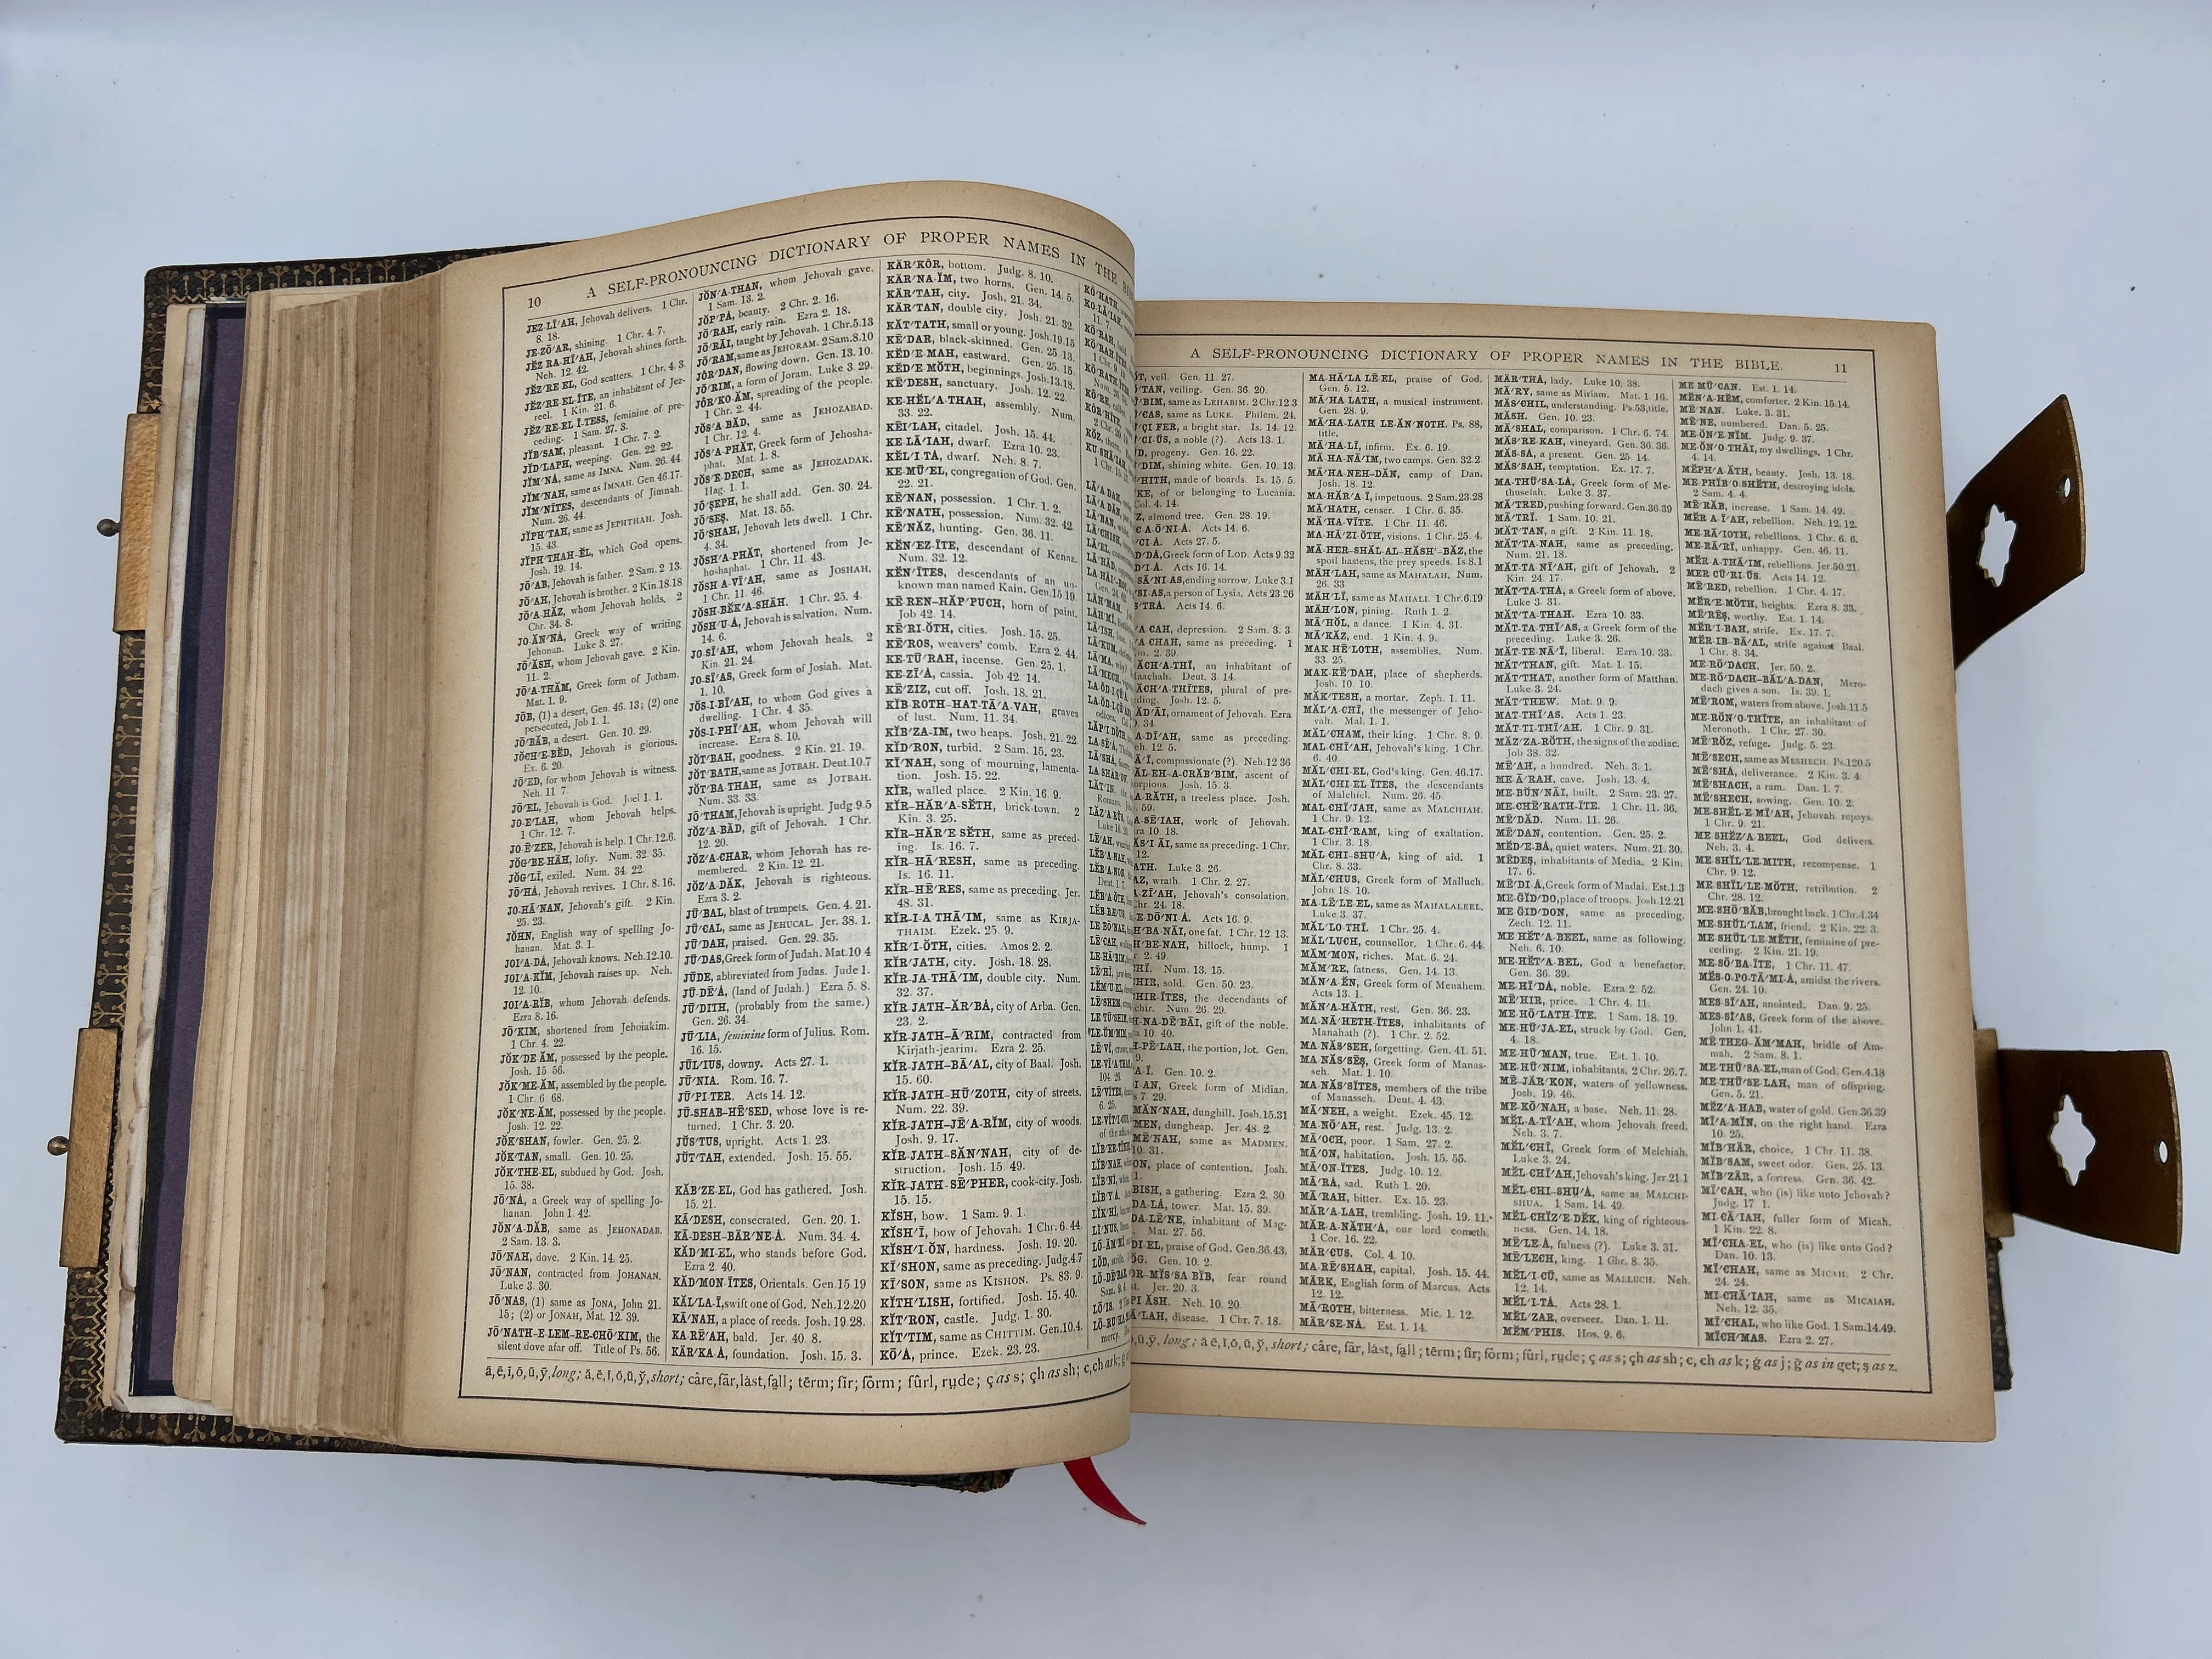 10
A SELF-PRONOUNCING DICTIONARY OF PROPER NAMES IN THE
JĔZ-LĪ′AH, Jehovah delivers. 1 Chr.
8. 18.
JE-ZŌ′AR, shining. 1 Chr. 4. 7.
JĔZ-RA-HĪ′AH, Jehovah shines forth.
Neh. 12. 42.
JĔZ′RE-EL, God scatters. 1 Chr. 4. 3.
JĔZ′RE-EL-ĪTE, an inhabitant of Jez-
reel. 1 Kin. 21. 6.
JĔZ′RE-EL-Ī-TESS, feminine of pre-
ceding. 1 Sam. 27. 3.
JĬB′SAM, pleasant. 1 Chr. 7. 2.
JĬD′LAPH, weeping. Gen. 22. 22.
JĬM′NÀ, same as IMNA. Num. 26. 44.
JĬM′NAH, same as IMNAH. Gen 46.17.
JĬM′NĪTES, descendants of Jimnah.
Num. 26. 44.
JĬPH′TAH, same as JEPHTHAH. Josh.
15. 43.
JĬPH′THAH-ĔL, which God opens.
Josh. 19. 14.
JŌ′AB, Jehovah is father. 2 Sam. 2 13.
JŌ′AH, Jehovah is brother. 2 Kin.18.18
JŌ′A-HĂZ, whom Jehovah holds. 2
Chr. 34. 8.
JO-ĂN′NÀ, Greek way of writing
Jehonan. Luke 3. 27.
JŌ′ĂSH, whom Jehovah gave. 2 Kin.
11. 2.
JŌ′A-THĂM, Greek form of Jotham.
Mat. 1. 9.
JŌB, (1) a desert, Gen. 46. 13; (2) one
persecuted, Job 1. 1.
JŌ′BĂB, a desert. Gen. 10. 29.
JŎCH′E-BĔD, Jehovah is glorious.
Ex. 6. 20.
JŌ′ED, for whom Jehovah is witness.
Neh. 11 7.
JŌ′EL, Jehovah is God. Joel 1. 1.
JO-E′LAH, whom Jehovah helps.
1 Chr. 12. 7.
JO-Ē′ZER, Jehovah is help. 1 Chr.12.6.
JŎG′BE-HĂH, lofty. Num. 32. 35.
JŎG′LĪ, exiled. Num. 34. 22.
JŌ′HÀ, Jehovah revives. 1 Chr. 8. 16.
JO-HĀ′NAN, Jehovah's gift. 2 Kin.
25. 23.
JŎHN, English way of spelling Jo-
hanan. Mat. 3. 1.
JOI′A-DÀ, Jehovah knows. Neh.12.10.
JOI′A-KĬM, Jehovah raises up. Neh.
12. 10.
JOI′A-RĬB, whom Jehovah defends.
Ezra 8. 16.
JŌ′KIM, shortened from Jehoiakim.
1 Chr. 4. 22.
JŎK′DE-ĂM, possessed by the people.
Josh. 15 56.
JŎK′ME-ĂM, assembled by the people.
1 Chr. 6. 68.
JŎK′NE-ĂM, possessed by the people.
Josh. 12. 22.
JŎK′SHAN, fowler. Gen. 25. 2.
JŎK′TAN, small. Gen. 10. 25.
JŎK′THE-EL, subdued by God. Josh.
15. 38.
JŌ′NÀ, a Greek way of spelling Jo-
hanan. John 1. 42.
JŎN′A-DĂB, same as JEHONADAB.
2 Sam. 13. 3.
JŌ′NAH, dove. 2 Kin. 14. 25.
JŌ′NAN, contracted from JOHANAN.
Luke 3. 30.
JŌ′NAS, (1) same as JONA, John 21.
15; (2) or JONAH, Mat. 12. 39.
JŌ′NATH-E-LEM-RE-CHŌ′KIM, the
silent dove afar off. Title of Ps. 56.
JŎN′A-THAN, whom Jehovah gave.
1 Sam. 13. 2.
JŎP′PÀ, beauty. 2 Chr. 2. 16.
JŌ′RAH, early rain. Ezra 2. 18.
JŌ′RĀI, taught by Jehovah. 1 Chr.5.13
JŌ′RAM,same as JEHORAM. 2Sam.8.10
JÔR′DAN, flowing down. Gen. 13. 10.
JŌ′RIM, a form of Joram. Luke 3. 29.
JÔR′KO-ĂM, spreading of the people.
1 Chr. 2. 44.
JŎS′A-BĂD, same as JEHOZABAD.
1 Chr. 12. 4.
JŎS′A-PHĂT, Greek form of Jehosha-
phat. Mat. 1. 8.
JŎS′E-DECH, same as JEHOZADAK.
Hag. 1. 1.
JŌ′ṢEPH, he shall add. Gen. 30. 24.
JŌ′ṢEṢ. Mat. 13. 55.
JŌ′SHAH, Jehovah lets dwell. 1 Chr.
4. 34.
JŎSH′A-PHĂT, shortened from Je-
hoshaphat. 1 Chr. 11. 43.
JŎSH-A-VĪ′AH, same as JOSHAH.
1 Chr. 11. 46.
JŎSH-BĔK′A-SHĂH. 1 Chr. 25. 4.
JŎSH′U-À, Jehovah is salvation. Num.
14. 6.
JO-SĪ′AH, whom Jehovah heals. 2
Kin. 21. 24.
JO-SĪ′AS, Greek form of Josiah. Mat.
1. 10.
JŎS-I-BĪ′AH, to whom God gives a
dwelling. 1 Chr. 4. 35.
JŎS-I-PHĪ′AH, whom Jehovah will
increase. Ezra 8. 10.
JŎT′BAH, goodness. 2 Kin. 21. 19.
JŎT′BATH,same as JOTBAH. Deut.10.7
JŎT′BA-THAH, same as JOTBAH.
Num. 33. 33.
JŌ′THAM,Jehovah is upright. Judg.9.5
JŎZ′A-BĂD, gift of Jehovah. 1 Chr.
12. 20.
JŎZ′A-CHAR, whom Jehovah has re-
membered. 2 Kin. 12. 21.
JŎZ′A-DĂK, Jehovah is righteous.
Ezra 3. 2.
JŪ′BAL, blast of trumpets. Gen. 4. 21.
JŪ′CAL, same as JEHUCAL. Jer. 38. 1.
JŪ′DAH, praised. Gen. 29. 35.
JŪ′DAS,Greek form of Judah. Mat.10 4
JŪDE, abbreviated from Judas. Jude 1.
JŪ-DĒ′À, (land of Judah.) Ezra 5. 8.
JŪ′DITH, (probably from the same.)
Gen. 26. 34.
JŪ′LIA, feminine form of Julius. Rom.
16. 15.
JŪL′IUS, downy. Acts 27. 1.
JŪ′NIA. Rom. 16. 7.
JŪ′PI-TER. Acts 14. 12.
JŪ-SHAB-HĒ′SED, whose love is re-
turned. 1 Chr. 3. 20.
JŬS′TUS, upright. Acts 1. 23.
JŬT′TAH, extended. Josh. 15. 55.
KĂB′ZE-EL, God has gathered. Josh.
15. 21.
KĀ′DESH, consecrated. Gen. 20. 1.
KĀ-DESH-BÄR′NE-À. Num. 34. 4.
KĂD′MI-EL, who stands before God.
Ezra 2. 40.
KĂD′MON-ĪTES, Orientals. Gen.15 19
KĂL′LA-Ī,swift one of God. Neh.12.20
KĀ′NAH, a place of reeds. Josh. 19.28.
KA-RĒ′AH, bald. Jer. 40 8.
KÄR′KA-À, foundation. Josh. 15. 3.
KÄR′KÔR, bottom. Judg. 8. 10.
KÄR′NA-ĬM, two horns. Gen. 14. 5.
KÄR′TAH, city. Josh. 21. 34.
KÄR′TAN, double city. Josh. 21. 32.
KĂT′TATH, small or young. Josh.19.15
KĒ′DAR, black-skinned. Gen. 25. 13.
KĔD′E-MAH, eastward. Gen. 25. 15.
KĔD′E-MŎTH, beginnings. Josh.13.18.
KĒ′DESH, sanctuary. Josh. 12. 22.
KE-HĔL′A-THAH, assembly. Num.
33. 22.
KĒI′LAH, citadel. Josh. 15. 44.
KE-LĀ′IAH, dwarf. Ezra 10. 23.
KĔL′I-TÀ, dwarf. Neh. 8. 7.
KE-MŪ′EL, congregation of God. Gen.
22. 21.
KĒ′NAN, possession. 1 Chr. 1. 2.
KĒ′NATH, possession. Num. 32. 42.
KĒ′NĂZ, hunting. Gen. 36. 11.
KĔN′EZ-ĪTE, descendant of Kenaz.
Num. 32. 12.
KĔN′ĪTES, descendants of an un-
known man named Kain. Gen.15 19.
KĒ-REN-HĂP′PUCH, horn of paint.
Job 42. 14.
KĒ′RI-ŎTH, cities. Josh. 15. 25.
KĒ′ROS, weavers' comb. Ezra 2. 44.
KE-TŪ′RAH, incense. Gen. 25. 1.
KE-ZĪ′À, cassia. Job 42. 14.
KĒ′ZIZ, cut off. Josh. 18. 21.
KĬB-ROTH-HAT-TĀ′A-VAH, graves
of lust. Num. 11. 34.
KĬB′ZA-IM, two heaps. Josh. 21. 22.
KĬD′RON, turbid. 2 Sam. 15. 23.
KĪ′NAH, song of mourning, lamenta-
tion. Josh. 15. 22.
KĬR, walled place. 2 Kin. 16. 9.
KĬR-HĂR′A-SĔTH, brick-town. 2
Kin. 3. 25.
KĬR-HĂR′E-SĔTH, same as preced-
ing. Is. 16. 7.
KĬR-HĀ′RESH, same as preceding.
Is. 16. 11.
KĬR-HĒ′RES, same as preceding. Jer.
48. 31.
KĬR-I-A-THĀ′IM, same as KIRJA-
THAIM. Ezek. 25. 9.
KĬR′I-ŎTH, cities. Amos 2. 2.
KĬR′JATH, city. Josh. 18. 28.
KĬR-JA-THĀ′IM, double city. Num.
32. 37.
KĬR-JATH-ÄR′BÀ, city of Arba. Gen.
23. 2.
KĬR-JATH-Ā′RIM, contracted from
Kirjath-jearim. Ezra 2. 25.
KĬR-JATH-BĀ′AL, city of Baal. Josh.
15. 60.
KĬR-JATH-HŪ′ZOTH, city of streets.
Num. 22. 39.
KĬR-JATH-JĒ′A-RĬM, city of woods.
Josh. 9. 17.
KĬR-JATH-SĂN′NAH, city of de-
struction. Josh. 15. 49.
KĬR-JATH-SĒ′PHER, cook-city. Josh.
15. 15.
KĬSH, bow. 1 Sam. 9. 1.
KĬSH′Ī, bow of Jehovah. 1 Chr. 6. 44.
KĬSH′I-ŎN, hardness. Josh. 19. 20.
KĪ′SHON, same as preceding. Judg.4.7
KĪ′SON, same as KISHON. Ps. 83. 9.
KĬTH′LISH, fortified. Josh. 15. 40.
KĬT′RON, castle. Judg. 1. 30.
KĬT′TIM, same as CHITTIM. Gen.10.4.
KŌ′À, prince. Ezek. 23. 23.
KŌ′HATH,
KO-LĀ′IAH,
11. 7.
KŌ′RAH,
ā,ē,ī,ō,ū,ȳ,long; ă,ĕ,ĭ,ŏ,ŭ,y̆,short; câre,fär,làst,fạll; tērm; fīr; fôrm; fûrl, rụde; ç as s; çh as sh; c, ch as k;
A SELF-PRONOUNCING DICTIONARY OF PROPER NAMES IN THE BIBLE.
11
veil. Gen. 11. 27.
veiling. Gen. 36. 20.
same as LEHABIM. 2 Chr.12.3
same as LUKE. Philem. 24.
a bright star. Is. 14. 12.
a noble (?). Acts 13. 1.
progeny. Gen. 16. 22.
shining white. Gen. 10. 13.
made of boards. Is. 15. 5.
of or belonging to Lucania.
Col. 4. 14.
almond tree. Gen. 28. 19.
Acts 14. 6.
Acts 27. 5.
Greek form of LOD. Acts 9 32
Acts 16. 14.
ending sorrow. Luke 3.1
a person of Lysia. Acts 23 26
Acts 14. 6.
depression. 2 Sam. 3. 3.
same as preceding. 1
2. 39.
an inhabitant of
Maachah. Deut. 3 14.
plural of pre-
ceding. Josh. 12. 5.
ornament of Jehovah. Ezra
34.
same as preceding.
Neh. 12. 5.
compassionate (?). Neh. 12 36
ascent of
scorpions. Josh. 15. 3.
a treeless place. Josh.
59.
work of Jehovah.
10 18.
same as preceding. 1 Chr.
12.
Luke 3. 26.
wrath. 1 Chr. 2. 27.
Jehovah's consolation.
Chr. 24. 18.
Acts 16. 9.
one fat. 1 Chr. 12. 13.
hillock, hump. 1
2. 49
Num. 13. 15.
sold. Gen. 50. 23.
the decendants of
Num. 26. 29.
gift of the noble.
10. 40.
the portion, lot. Gen.
9.
Gen. 10. 2.
Greek form of Midian.
7. 29.
dunghill. Josh.15.31
dungheap. Jer. 48. 2.
same as MADMEN.
10. 31.
place of contention. Josh.
1.
a gathering. Ezra 2. 30.
tower. Mat. 15. 39.
inhabitant of Mag-
Mat. 27. 56.
praise of God. Gen.36.43.
Gen. 10. 2.
fear round
Jer. 20. 3.
Neh. 10. 20.
disease. 1 Chr. 7. 18.
MA-HĀ′LA-LĒ-EL, praise of God.
Gen. 5. 12.
MĀ′HA-LATH, a musical instrument.
Gen. 28. 9.
MĀ′HA-LATH LE-ĂN′NOTH. Ps. 88,
title.
MĀ′HA-LĪ, infirm. Ex. 6. 19.
MĀ-HA-NĀ′IM, two camps. Gen. 32.2.
MĀ′HA-NEH-DĂN, camp of Dan.
Josh. 18. 12.
MA-HĂR′A-Ī, impetuous. 2 Sam.23.28
MĀ′HATH, censer. 1 Chr. 6. 35.
MĀ′HA-VĪTE. 1 Chr. 11. 46.
MA-HĀ′ZI-ŎTH, visions. 1 Chr. 25. 4.
MĀ-HER-SHĂL-AL-HĂSH′-BĂZ, the
spoil hastens, the prey speeds. Is.8.1
MÄH′LAH, same as MAHALAH. Num.
26. 33
MÄH′LĪ, same as MAHALI. 1 Chr.6.19
MÄH′LON, pining. Ruth 1. 2.
MĀ′HŎL, a dance. 1 Kin. 4. 31.
MĀ′KĂZ, end. 1 Kin. 4. 9.
MAK-HĒ′LOTH, assemblies. Num.
33. 25.
MAK-KĒ′DAH, place of shepherds.
Josh. 10. 10.
MĂK′TESH, a mortar. Zeph. 1. 11.
MĂL′A-CHĪ, the messenger of Jeho-
vah. Mal. 1. 1.
MĂL′CHAM, their king. 1 Chr. 8. 9.
MAL-CHĪ′AH, Jehovah's king. 1 Chr.
6. 40.
MĂL′CHI-EL, God's king. Gen. 46.17.
MĂL′CHI-EL-ĪTES, the descendants
of Malchiel. Num. 26. 45.
MAL-CHĪ′JAH, same as MALCHIAH.
1 Chr. 9. 12.
MAL-CHĪ′RAM, king of exaltation.
1 Chr. 3. 18.
MĂL-CHI-SHỤ′À, king of aid. 1
Chr. 8. 33.
MĂL′CHUS, Greek form of Malluch.
John 18. 10.
MA-LĒ′LE-EL, same as MAHALALEEL.
Luke 3. 37.
MĂL′LO-THĪ. 1 Chr. 25. 4.
MĂL′LUCH, counsellor. 1 Chr. 6. 44.
MĂM′MON, riches. Mat. 6. 24.
MĂM′RE, fatness. Gen. 14. 13.
MĂN′A-ĔN, Greek form of Menahem.
Acts 13. 1.
MĂN′A-HĂTH, rest. Gen. 36. 23.
MA-NĀ′HETH-ĪTES, inhabitants of
Manahath (?). 1 Chr. 2. 52.
MA-NĂS′SEH, forgetting. Gen. 41. 51.
MA-NĂS′SĒṢ, Greek form of Manas-
seh. Mat. 1. 10.
MA-NĂS′SĪTES, members of the tribe
of Manasseh. Deut. 4. 43.
MĀ′NEH, a weight. Ezek. 45. 12.
MA-NŌ′AH, rest. Judg. 13. 2.
MĀ′OCH, poor. 1 Sam. 27. 2.
MĀ′ON, habitation. Josh. 15. 55.
MĀ′ON-ĪTES. Judg. 10. 12.
MĀ′RÀ, sad. Ruth 1. 20.
MĀ′RAH, bitter. Ex. 15. 23.
MĂR′A-LAH, trembling. Josh. 19. 11.
MĂR-A-NĂTH′À, our lord cometh.
1 Cor. 16. 22.
MÄR′CUS. Col. 4. 10.
MA-RĒ′SHAH, capital. Josh. 15. 44.
MÄRK, English form of Marcus. Acts
12. 12.
MĀ′ROTH, bitterness. Mic. 1. 12.
MÄR′SE-NÀ. Est. 1. 14.
MÄR′THÀ, lady. Luke 10. 38.
MĀ′RY, same as Miriam. Mat. 1. 16.
MĂS′CHIL, understanding. Ps.53,title.
MĂSH. Gen. 10. 23.
MĀ′SHAL, comparison. 1 Chr. 6. 74.
MĂS′RE-KAH, vineyard. Gen. 36. 36.
MĂS′SÀ, a present. Gen. 25. 14.
MĂS′SAH, temptation. Ex. 17. 7.
MA-THŪ′SA-LÀ, Greek form of Me-
thuselah. Luke 3. 37.
MĀ′TRED, pushing forward. Gen.36.39
MĀ′TRĪ. 1 Sam. 10. 21.
MĂT′TAN, a gift. 2 Kin. 11. 18.
MĂT′TA-NAH, same as preceding.
Num. 21. 18.
MĂT-TA-NĪ′AH, gift of Jehovah. 2
Kin. 24. 17.
MĂT′TA-THÀ, a Greek form of above.
Luke 3. 31.
MĂT′TA-THAH. Ezra 10. 33.
MĂT-TA-THĪ′AS, a Greek form of the
preceding. Luke 3. 26.
MĂT-TE-NĀ′Ī, liberal. Ezra 10. 33.
MĂT′THAN, gift. Mat. 1. 15.
MĂT′THAT, another form of Matthan.
Luke 3. 24.
MĂT′THEW. Mat. 9. 9.
MAT-THĪ′AS. Acts 1. 23.
MĂT-TI-THĪ′AH. 1 Chr. 9. 31.
MĂZ′ZA-RŎTH, the signs of the zodiac.
Job 38. 32.
MĒ′AH, a hundred. Neh. 3. 1.
ME-Ā′RAH, cave. Josh. 13. 4.
ME-BŬN′NĀI, built. 2 Sam. 23. 27.
ME-CHĒ′RATH-ĪTE. 1 Chr. 11. 36.
MĒ′DĂD. Num. 11. 26.
MĒ′DAN, contention. Gen. 25. 2.
MĔD′E-BÀ, quiet waters. Num. 21. 30.
MĒDEṢ, inhabitants of Media. 2 Kin.
17. 6.
MĒ′DI-À,Greek form of Madai. Est.1.3
ME-ḠĬD′DO,place of troops. Josh.12.21
ME-ḠĬD′DON, same as preceding.
Zech. 12. 11.
ME-HĔT′A-BEEL, same as following.
Neh. 6. 10.
ME-HĔT′A-BEL, God a benefactor.
Gen. 36. 39.
ME-HĪ′DÀ, noble. Ezra 2. 52.
MĒ′HIR, price. 1 Chr. 4. 11.
ME-HŌ′LATH-ĪTE. 1 Sam. 18. 19.
ME-HŪ′JA-EL, struck by God. Gen.
4. 18.
ME-HŪ′MAN, true. Est. 1. 10.
ME-HŪ′NIM, inhabitants. 2 Chr. 26. 7.
ME-JÄR′KON, waters of yellowness.
Josh. 19. 46.
ME-KŌ′NAH, a base. Neh. 11. 28.
MĔL-A-TĪ′AH, whom Jehovah freed.
Neh. 3. 7.
MĔL′CHĪ, Greek form of Melchiah.
Luke 3. 24.
MĔL-CHĪ′AH,Jehovah's king. Jer.21 1
MĔL-CHI-SHỤ′À, same as MALCHI-
SHUA. 1 Sam. 14. 49.
MĔL-CHĬZ′E-DĔK, king of righteous-
ness. Gen. 14. 18.
MĒ′LE-À, fulness (?). Luke 3. 31.
MĒ′LECH, king. 1 Chr. 8. 35.
MĔL′I-CŪ, same as MALLUCH. Neh.
12. 14.
MĔL′I-TÀ. Acts 28. 1.
MĔL′ZAR, overseer. Dan. 1. 11.
MĔM′PHIS. Hos. 9. 6.
ME-MŪ′CAN. Est. 1. 14.
MĔN′A-HĔM, comforter. 2 Kin. 15.14.
MĒ′NAN. Luke 3. 31.
MĒ′NE, numbered. Dan. 5. 25.
ME-ŎN′E-NĬM. Judg. 9. 37.
ME-ŎN′O-THĀI, my dwellings. 1 Chr.
4. 14.
MĔPH′A-ĂTH, beauty. Josh. 13. 18.
ME-PHĬB′O-SHĔTH, destroying idols.
2 Sam. 4. 4.
MĒ′RĂB, increase. 1 Sam. 14. 49.
MĔR-A-Ī′AH, rebellion. Neh. 12. 12.
ME-RĀ′IOTH, rebellions. 1 Chr. 6. 6.
ME-RĀ′RĪ, unhappy. Gen. 46. 11.
MĔR-A-THĀ′IM, rebellions. Jer.50.21.
MER-CŪ′RI-ŬS. Acts 14. 12.
MĒ′RED, rebellion. 1 Chr. 4. 17.
MĔR′E-MŎTH, heights. Ezra 8. 33.
MĒ′RĒṢ, worthy. Est. 1. 14.
MĔR′I-BAH, strife. Ex. 17. 7.
MĔR-IB-BĀ′AL, strife against Baal.
1 Chr. 8. 34.
ME-RŌ′DACH. Jer. 50. 2.
ME-RŌ′DACH-BĂL′A-DAN, Mero-
dach gives a son. Is. 39. 1.
MĒ′ROM, waters from above. Josh.11.5
ME-RŎN′O-THĪTE, an inhabitant of
Meronoth. 1 Chr. 27. 30.
MĒ′RŎZ, refuge. Judg. 5. 23.
MĒ′SECH, same as MESHECH. Ps.120.5
MĒ′SHÀ, deliverance. 2 Kin. 3. 4.
MĒ′SHACH, a ram. Dan. 1. 7.
MĒ′SHECH, sowing. Gen. 10. 2.
ME-SHĔL-E-MĪ′AH, Jehovah repays.
1 Chr. 9. 21.
ME-SHĔZ′A-BEEL, God delivers.
Neh. 3. 4.
ME-SHĬL′LE-MITH, recompense. 1
Chr. 9. 12.
ME-SHĬL′LE-MŎTH, retribution. 2
Chr. 28. 12.
ME-SHŌ′BĂB,brought back. 1 Chr.4.34
ME-SHŬL′LAM, friend. 2 Kin. 22. 3.
ME-SHŬL′LE-MĔTH, feminine of pre-
ceding. 2 Kin. 21. 19.
ME-SŌ′BA-ĪTE, 1 Chr. 11. 47.
MĔS-O-PO-TĀ′MI-À, amidst the rivers.
Gen. 24. 10.
MES-SĪ′AH, anointed. Dan. 9. 25.
MES-SĪ′AS, Greek form of the above.
John 1. 41.
MĒ′THEG-ĂM′MAH, bridle of Am-
mah. 2 Sam. 8. 1.
ME-THŪ′SA-EL,man of God. Gen.4.18
ME-THŪ′SE-LAH, man of offspring.
Gen. 5. 21.
MĔZ′A-HAB, water of gold. Gen 36.39
MĪ′A-MĬN, on the right hand. Ezra
10. 25.
MĬB′HÄR, choice. 1 Chr. 11. 38.
MĬB′SAM, sweet odor. Gen. 25. 13.
MĬB′ZÄR, a fortress. Gen. 36. 42.
MĪ′CAH, who (is) like unto Jehovah?
Judg. 17 1.
MI-CĀ′IAH, fuller form of Micah.
1 Kin. 22. 8.
MĪ′CHA-EL, who (is) like unto God?
Dan. 10. 13.
MĪ′CHAH, same as MICAH. 2 Chr.
24. 24.
MI-CHĀ′IAH, same as MICAIAH.
Neh. 12. 35.
MĪ′CHAL, who like God. 1 Sam.14.49.
MĬCH′MAS. Ezra 2. 27.
ū,ȳ, long; ă,ĕ,ĭ,ŏ,ŭ,y̆, short; câre, fär, làst, fạll; tērm; fīr; fôrm; fûrl, rụde; ç as s; çh as sh; c, ch as k; ġ as j; ḡ as in get; ṣ as z.